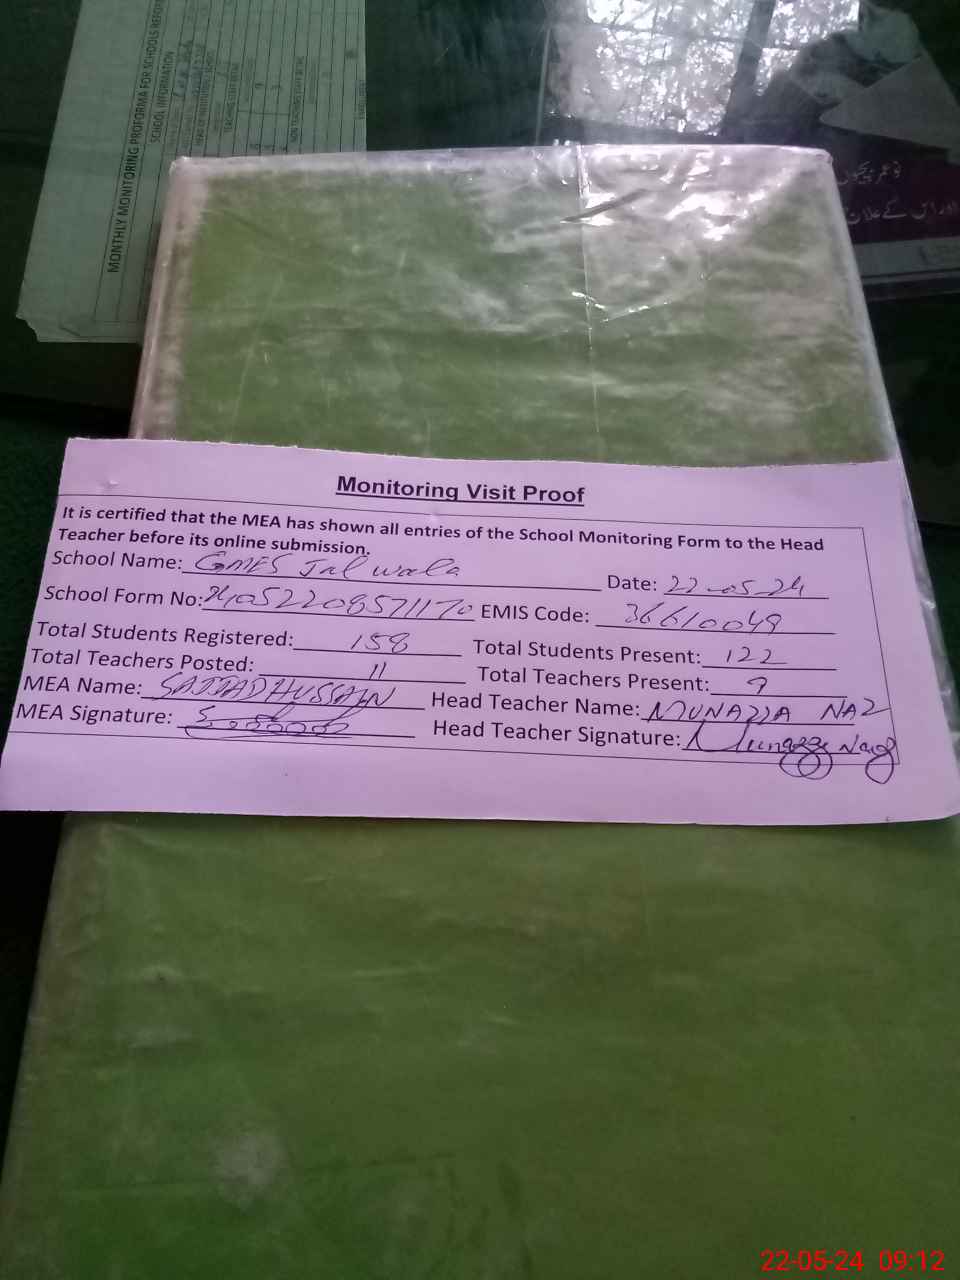 MONTHLY MONITORING PROFORMA FOR SCHOOLS REPORT
SCHOOL INFORMATION
Monitoring Visit Proof
It is certified that the MEA has shown all entries of the School Monitoring Form to the Head
Teacher before its online submission.
School Name: GMES Jalwala Date: 22-05-24
School Form No: 2405220857117o EMIS Code: 36610049
Total Students Registered: 158 Total Students Present: 122
Total Teachers Posted: 11 Total Teachers Present: 9
MEA Name: SAJJAD HUSSAIN Head Teacher Name: MUNAZZA NAZ
MEA Signature: Head Teacher Signature: Munazza Naz
اور اس کے علاج
22-05-24 09:12